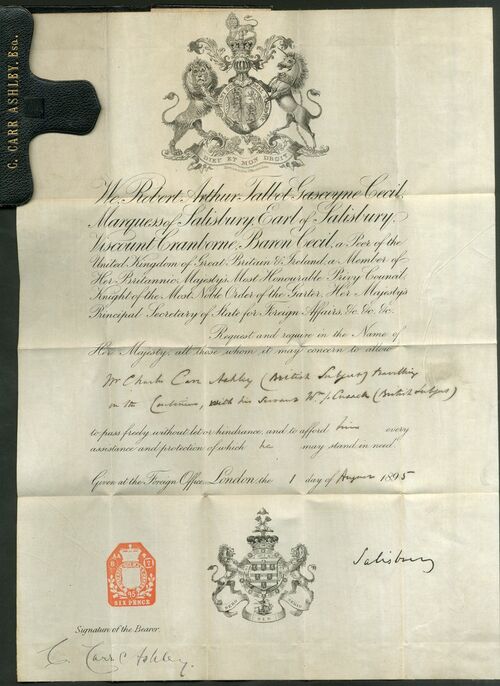 C. CARR ASHLEY, Esq.
DIEU ET MON DROIT
We, Robert Arthur Talbot Gascoyne Cecil,
Marquess of Salisbury, Earl of Salisbury,
Viscount Cranborne, Baron Cecil, a Peer of the
United Kingdom of Great Britain & Ireland, a Member of
Her Britannic Majesty's Most Honourable Privy Council,
Knight of the Most Noble Order of the Garter, Her Majesty's
Principal Secretary of State for Foreign Affairs, &c. &c. &c.
Request and require in the Name of
Her Majesty, all those whom it may concern to allow
Mr Charles Carr Ashley (British Subject) travelling
on the Continent, with his servant Wm J. (British Subject)
to pass freely without let or hindrance, and to afford him every
assistance and protection of which he may stand in need.
Given at the Foreign Office, London, the 1 day of August 1895
Salisbury
95
SIX PENCE
SERO SED SERIO
Signature of the Bearer.
C. Carr Ashley.